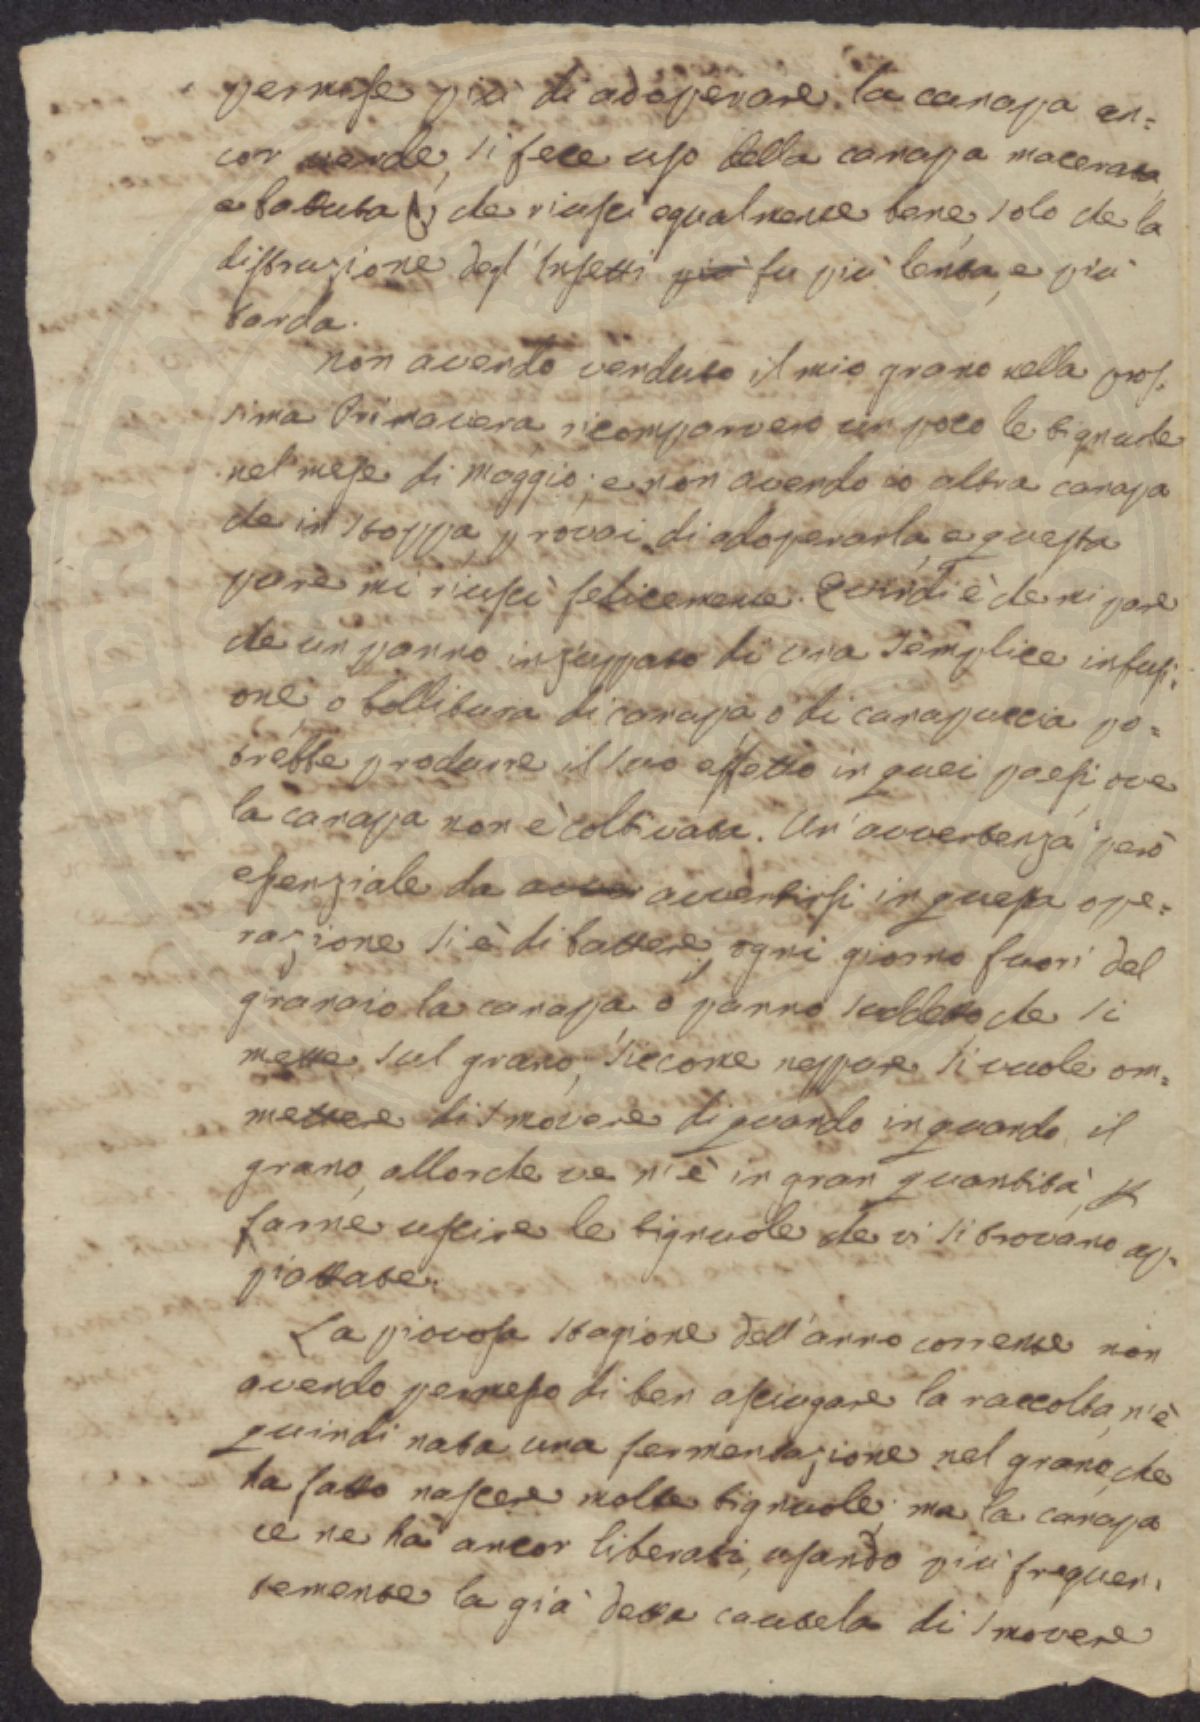 permise più di adoperare la canapa an=
cor verde, si fece uso della canapa macerata,
e battuta, che riuscì egualmente bene, solo che la
distruzione degl'Insetti più fu più lenta, e più
tarda.
Non avendo venduto il mio grano nella pros-
sima Primavera ricomparvero un poco le tignuole
nel mese di Maggio; e non avendo io altra canapa
che in stoppa, provai di adoperarla, e questa
pure mi riuscì felicemente. Quindi è che mi pare
che un panno inzuppato di una semplice infusi=
one, o bollitura di canapa, o di canapuccia po=
trebbe produrre il suo effetto in quei paesi, ove
la canapa non è coltivata. Un'avvertenza però
essenziale da avver avvertirsi in questa ope=
razione si è di battere, ogni giorno fuori del
granaio la canapa o il panno suddetto che si
mette sul grano; siccome neppure si vuole om=
mettere di smovere di quando in quando il
grano, allorche ve n'è in gran quantità, p
farne uscire le tignuole che vi si trovano ap=
piattate.
La piovosa stagione dell'anno corrente non
avendo permesso di ben asciugare la raccolta, n'è
quindi nata una fermentazione nel grano, che
ha fatto nascere molte tignuole; ma la canapa
ce ne ha ancor liberati, usando più frequen=
temente la già detta cautela di smovere